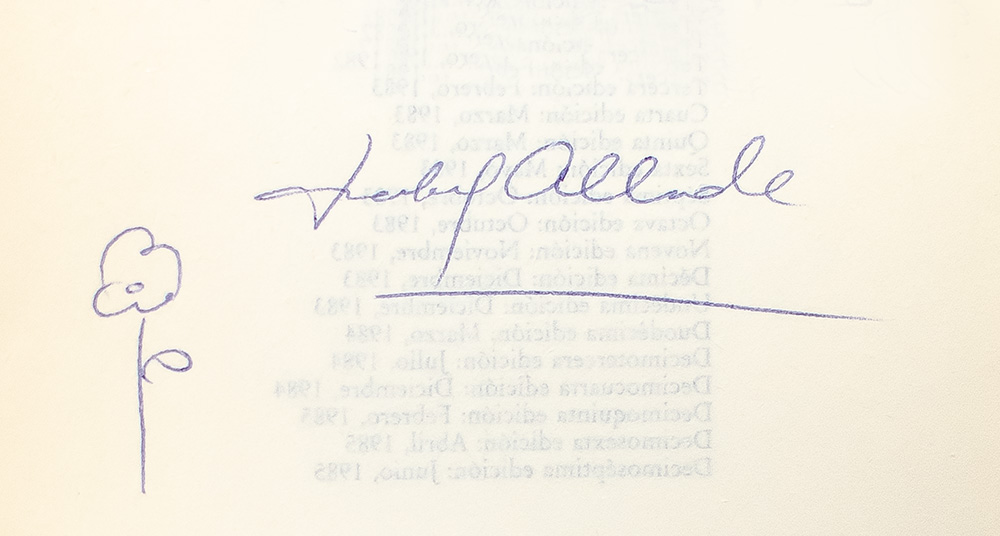 Isabel Allende
Tercera edición: Febrero, 1983
Cuarta edición: Marzo, 1983
Quinta edición: Marzo, 1983
Sexta edición:
Octava edición: Octubre, 1983
Novena edición: Noviembre, 1983
Décima edición: Diciembre, 1983
Undécima edición: Diciembre, 1983
Duodécima edición, Marzo, 1984
Decimotercera edición: Julio, 1984
Decimocuarta edición: Diciembre, 1984
Decimoquinta edición: Febrero, 1985
Decimosexta edición: Abril, 1985
Decimoséptima edición: Junio, 1985